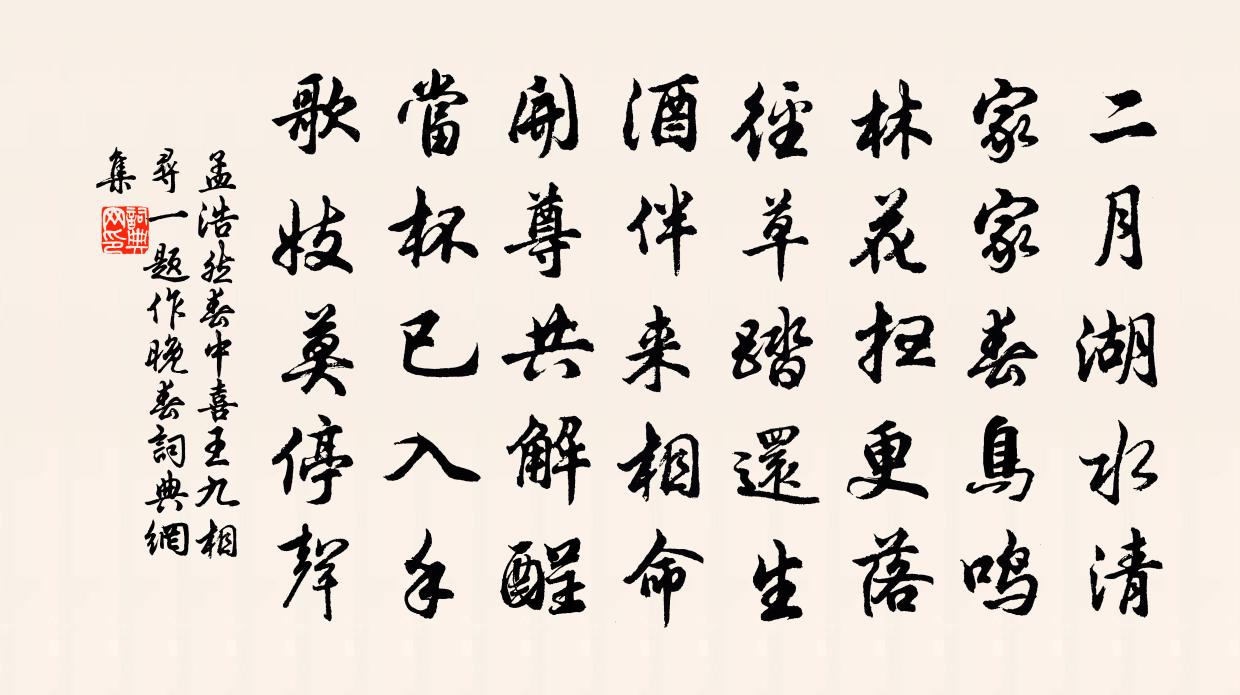 二月湖水清
家家春鳥鳴
林花掃更落
徑草踏還生
酒伴来相命
開尊共解酲
當杯已入手
歌妓莫停聲
孟浩然春中喜王九相
尋一題作晚春詞典網
集
詞典
网印